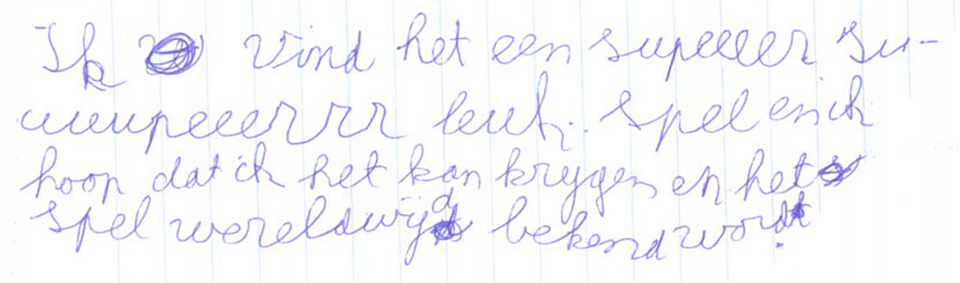 Ik vind het een supeeer su-
uuupeeerrr leuk. spel en ik
hoop dat ik het kan krygen en het
spel wereldwijd bekend wordt